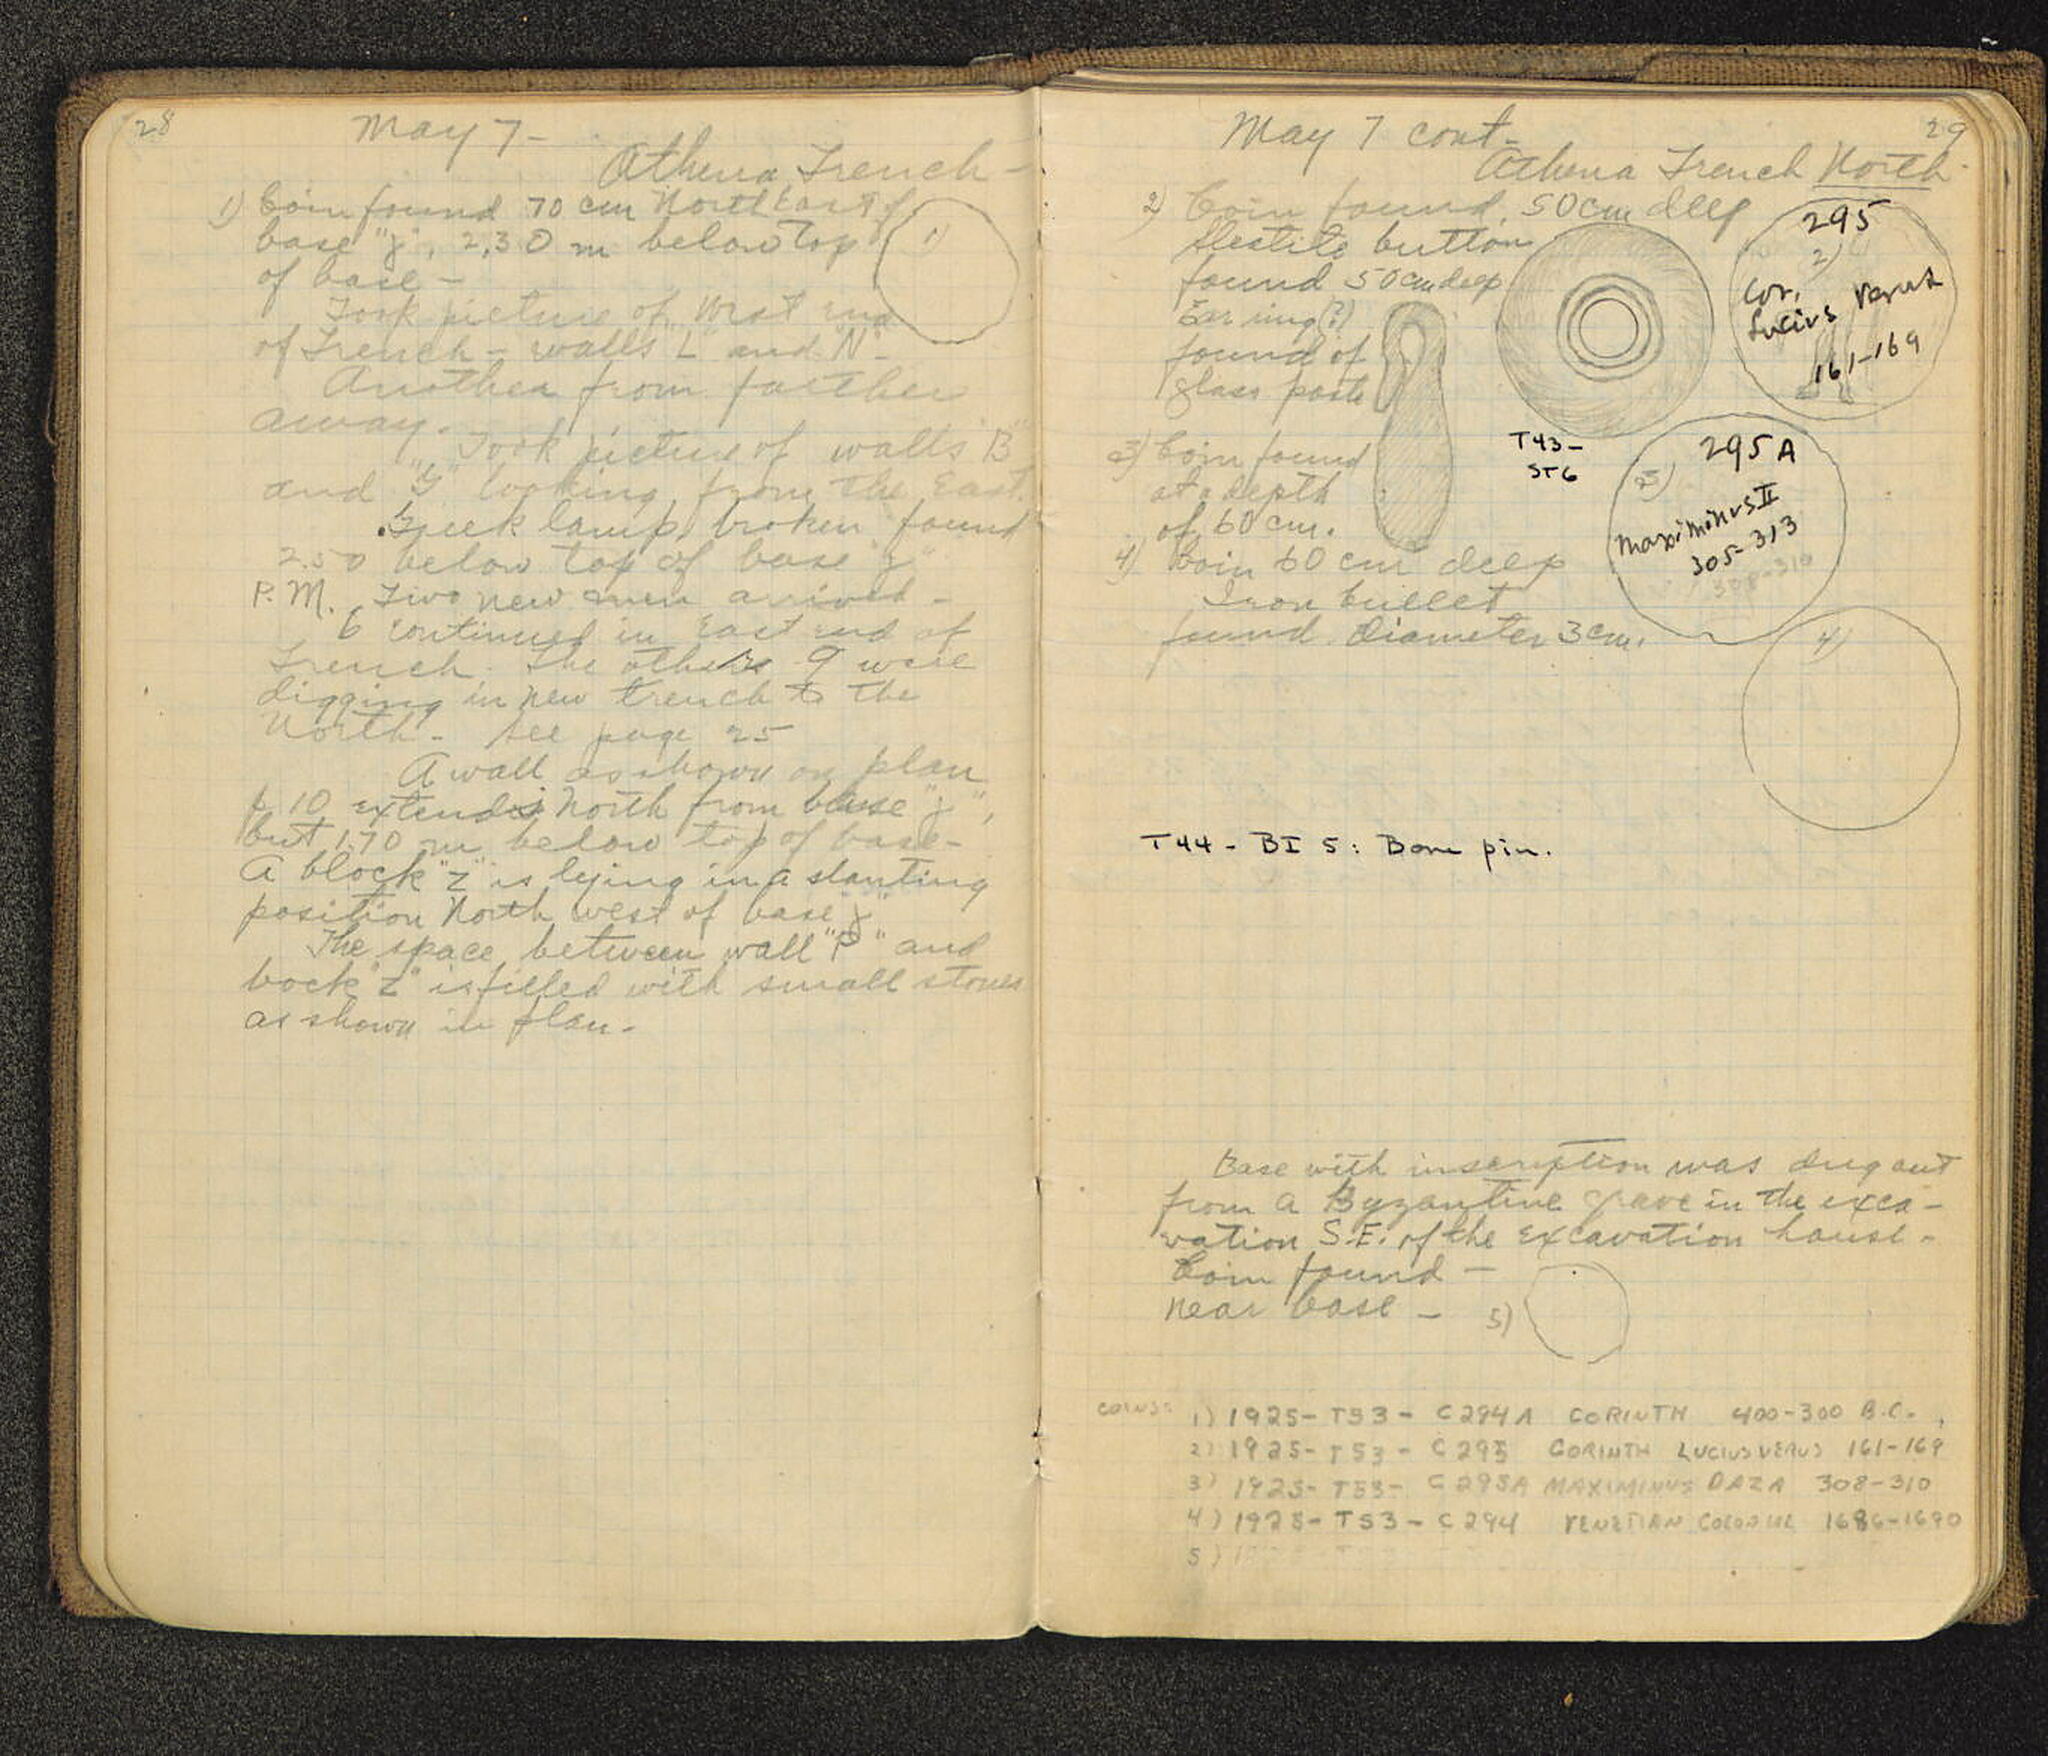 28
May 7 -
Athena Trench -
1) Coin found 70 cm North East of
base "j", 2,30 m below top
of base -
1)
Took picture of West end
of Trench - walls "L" and "N" -
Another from farther
away.
Took picture of walls "B"
and "G" looking from the East.
Greek lamp, broken found
2.50 below top of base "j"
P.M. Two new men arrived -
6 continued in East end of
Trench. The others 9 were
digging in new trench to the
North - see page 25
A wall as shown on plan
p. 10 extends North from base "j",
but 1.70 m below top of base -
A block "Z" is lying in a slanting
position North west of base "j"
The space between wall "P" and
bock "Z" is filled with small stones
as shown in plan -
29
May 7 cont -
Athena Trench North -
2) Coin found, 50 cm deep
Steatite button
found 50 cm deep
Ear ring (?)
found of
glass paste
295
2)
Cor.
Lucius Verus
161-169
T43-
ST6
3) Coin found
at a depth
of 60 cm.
295 A
3)
Maximinus II
305-313
308-310
4) Coin 60 cm deep
Iron bullet
found. Diameter 3 cm.
4)
T44 - BI 5: Bone pin.
Base with inscription was dug out
from a Byzantine grave in the exca-
vation S.E. of the Excavation house -
Coin found -
near base - 5)
COINS: 1) 1925 - T53 - C294A CORINTH 400-300 B.C.
2) 1925 - T53 - C295 CORINTH LUCIUS VERUS 161-169
3) 1925 - T53 - C295A MAXIMINUS DAZA 308-310
4) 1925 - T53 - C294 VENETIAN COLONIAL 1686-1690
5)